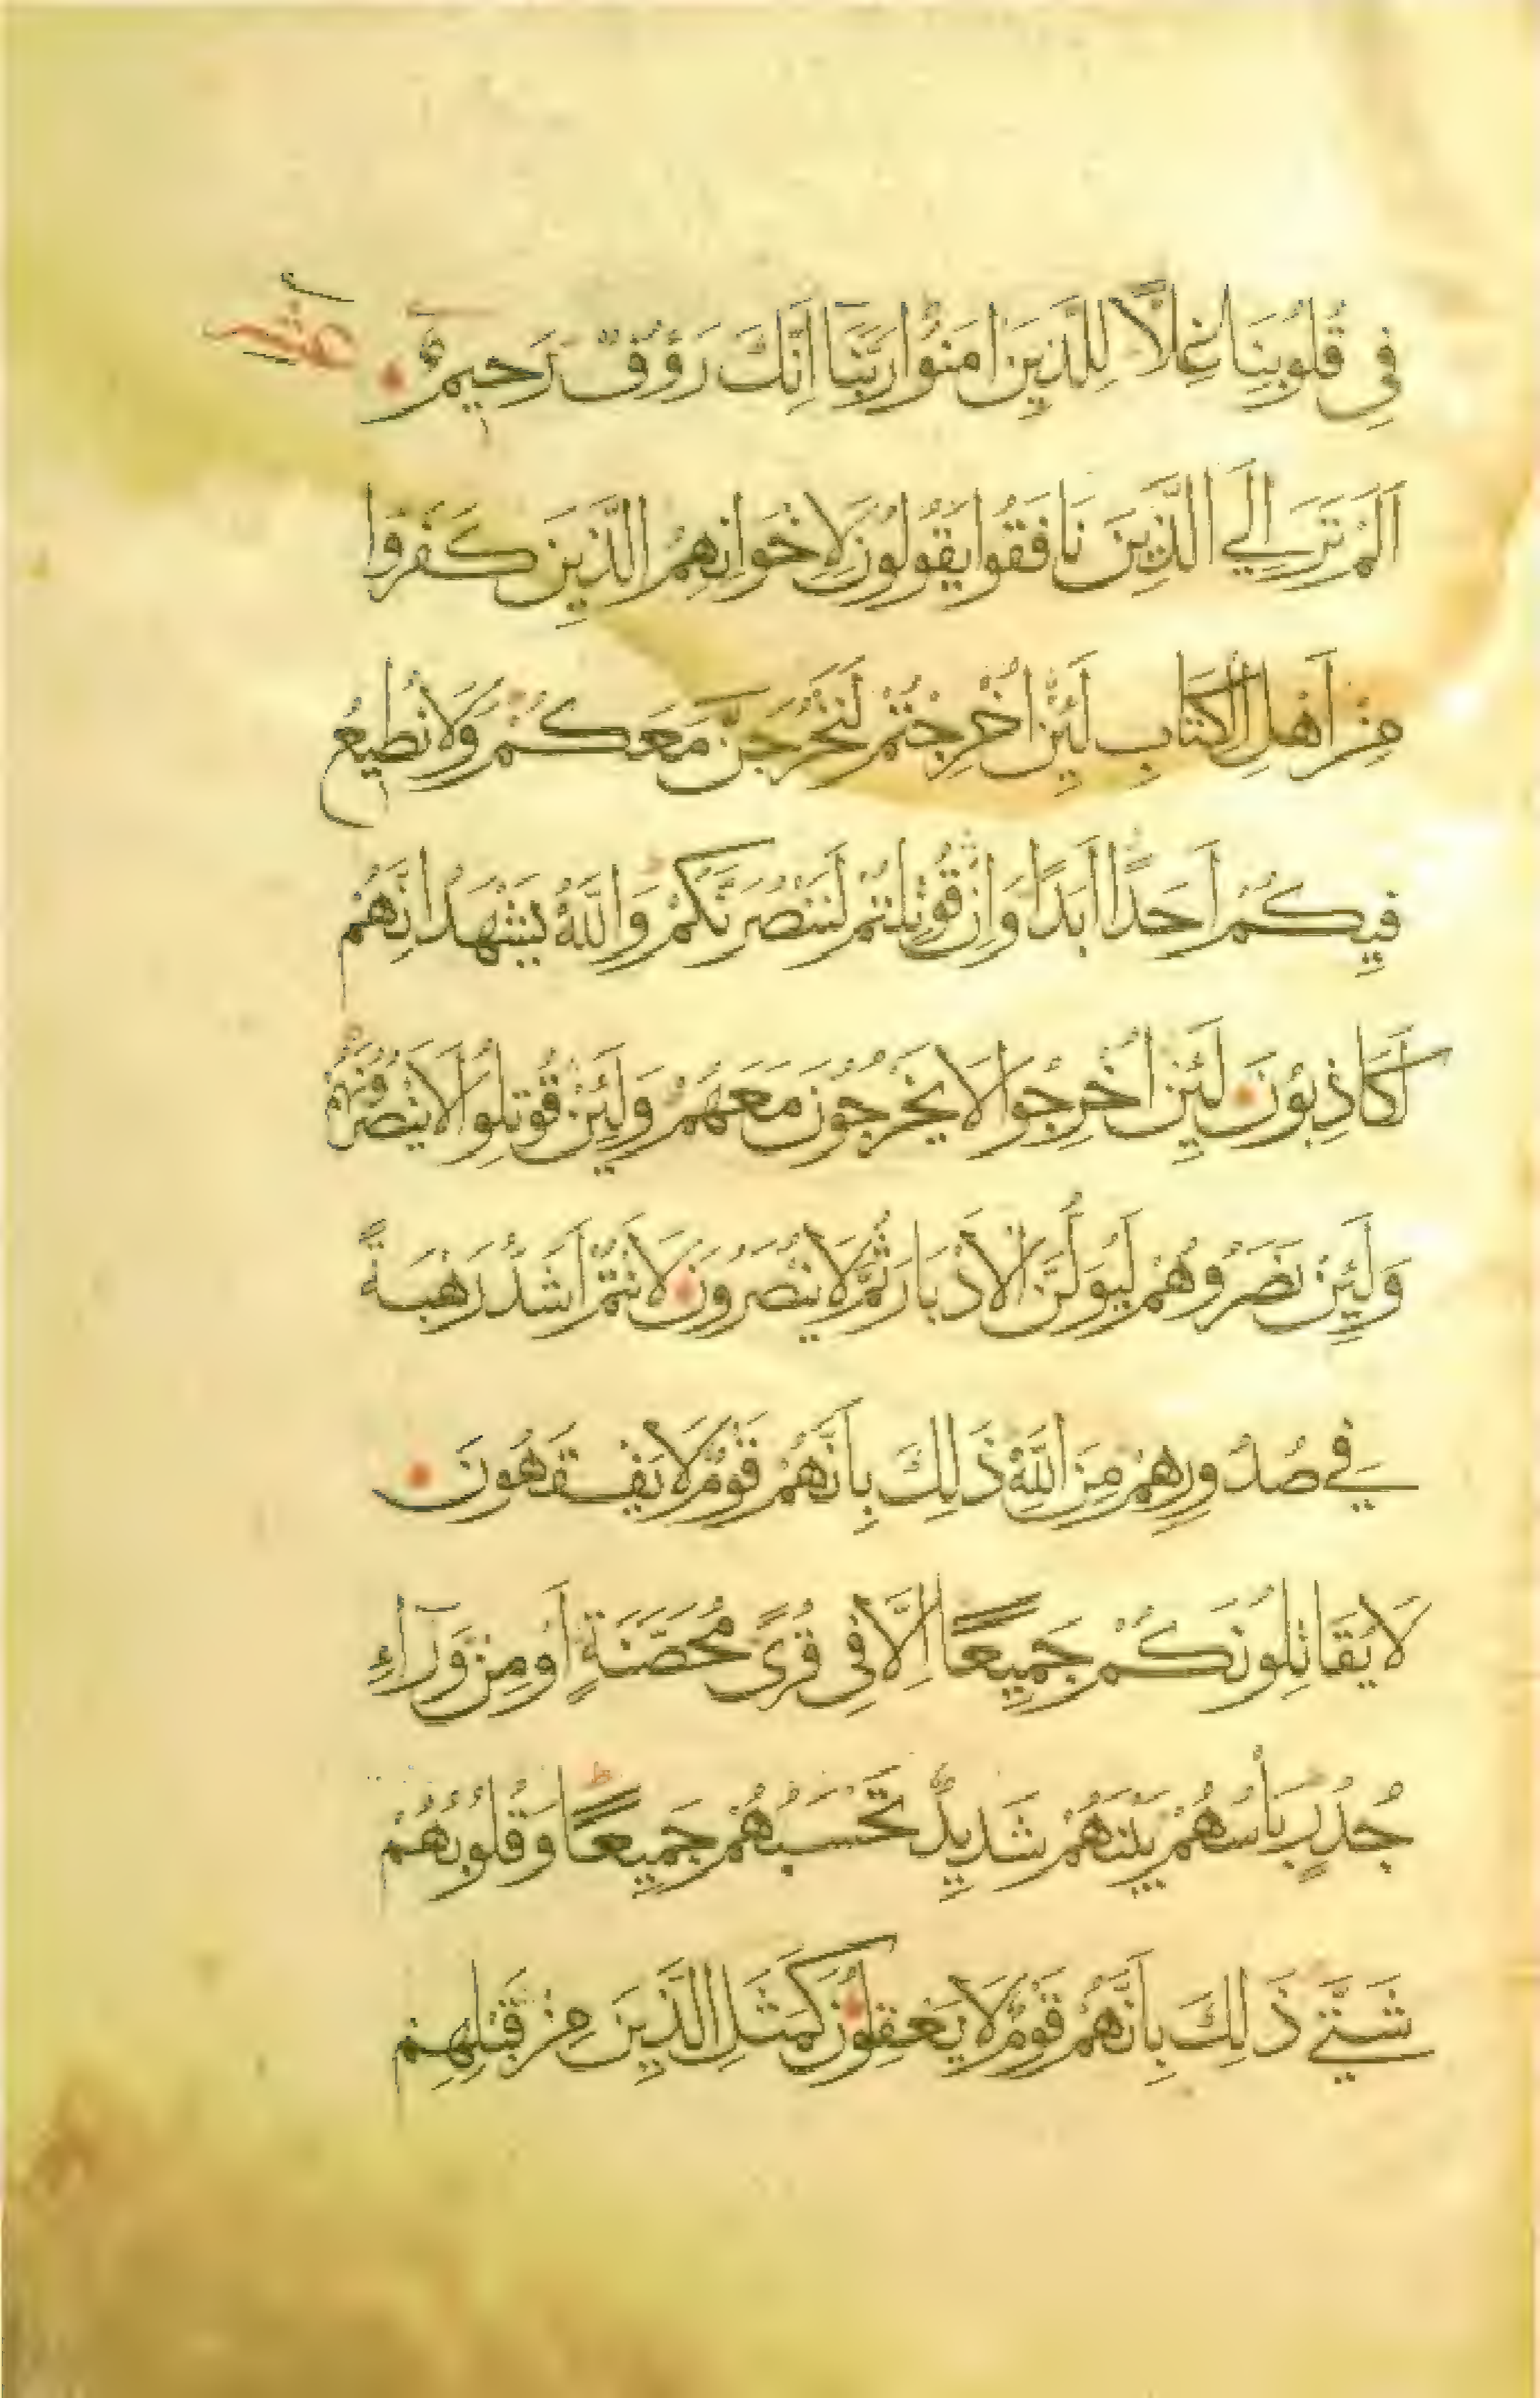 فِي قُلُوبِنَا غِلًّا لِلَّذِينَ امَنُوا رَبَّنَا اِنَّكَ رَؤُفٌ رَحِيمٌ عشر
اَلَمْ تَرَ اِلَي الَّذِينَ نَافَقُوا يَقُولُونَ لِاِخْوَانِهِمُ الَّذِينَ كَفَرُوا
مِنْ اَهْلِ الْكِتَابِ لَئِنْ اُخْرِجْتُمْ لَنَخْرُجَنَّ مَعَكُمْ وَلَا نُطِيعُ
فِيكُمْ اَحَدًا اَبَدًا وَاِنْ قُوتِلْتُمْ لَنَنْصُرَنَّكُمْ وَاللَّهُ يَشْهَدُ اِنَّهُمْ
لَكَاذِبُونَ لَئِنْ اُخْرِجُوا لَا يَخْرُجُونَ مَعَهُمْ وَلَئِنْ قُوتِلُوا لَا يَنْصُرُونَهُمْ
وَلَئِنْ نَصَرُوهُمْ لَيُوَلُّنَّ الْاَدْبَارَ ثُمَّ لَا يُنْصَرُونَ لَاَنْتُمْ اَشَدُّ رَهْبَةً
فِي صُدُورِهِمْ مِنَ اللَّهِ ذَلِكَ بِاَنَّهُمْ قَوْمٌ لَا يَفْقَهُونَ
لَا يُقَاتِلُونَكُمْ جَمِيعًا اِلَّا فِي قُرًى مُحَصَّنَةٍ اَوْ مِنْ وَرَآءِ
جُدُرٍ بَأْسُهُمْ بَيْنَهُمْ شَدِيدٌ تَحْسَبُهُمْ جَمِيعًا وَقُلُوبُهُمْ
شَتَّي ذَلِكَ بِاَنَّهُمْ قَوْمٌ لَا يَعْقِلُونَ كَمَثَلِ الَّذِينَ مِنْ قَبْلِهِمْ